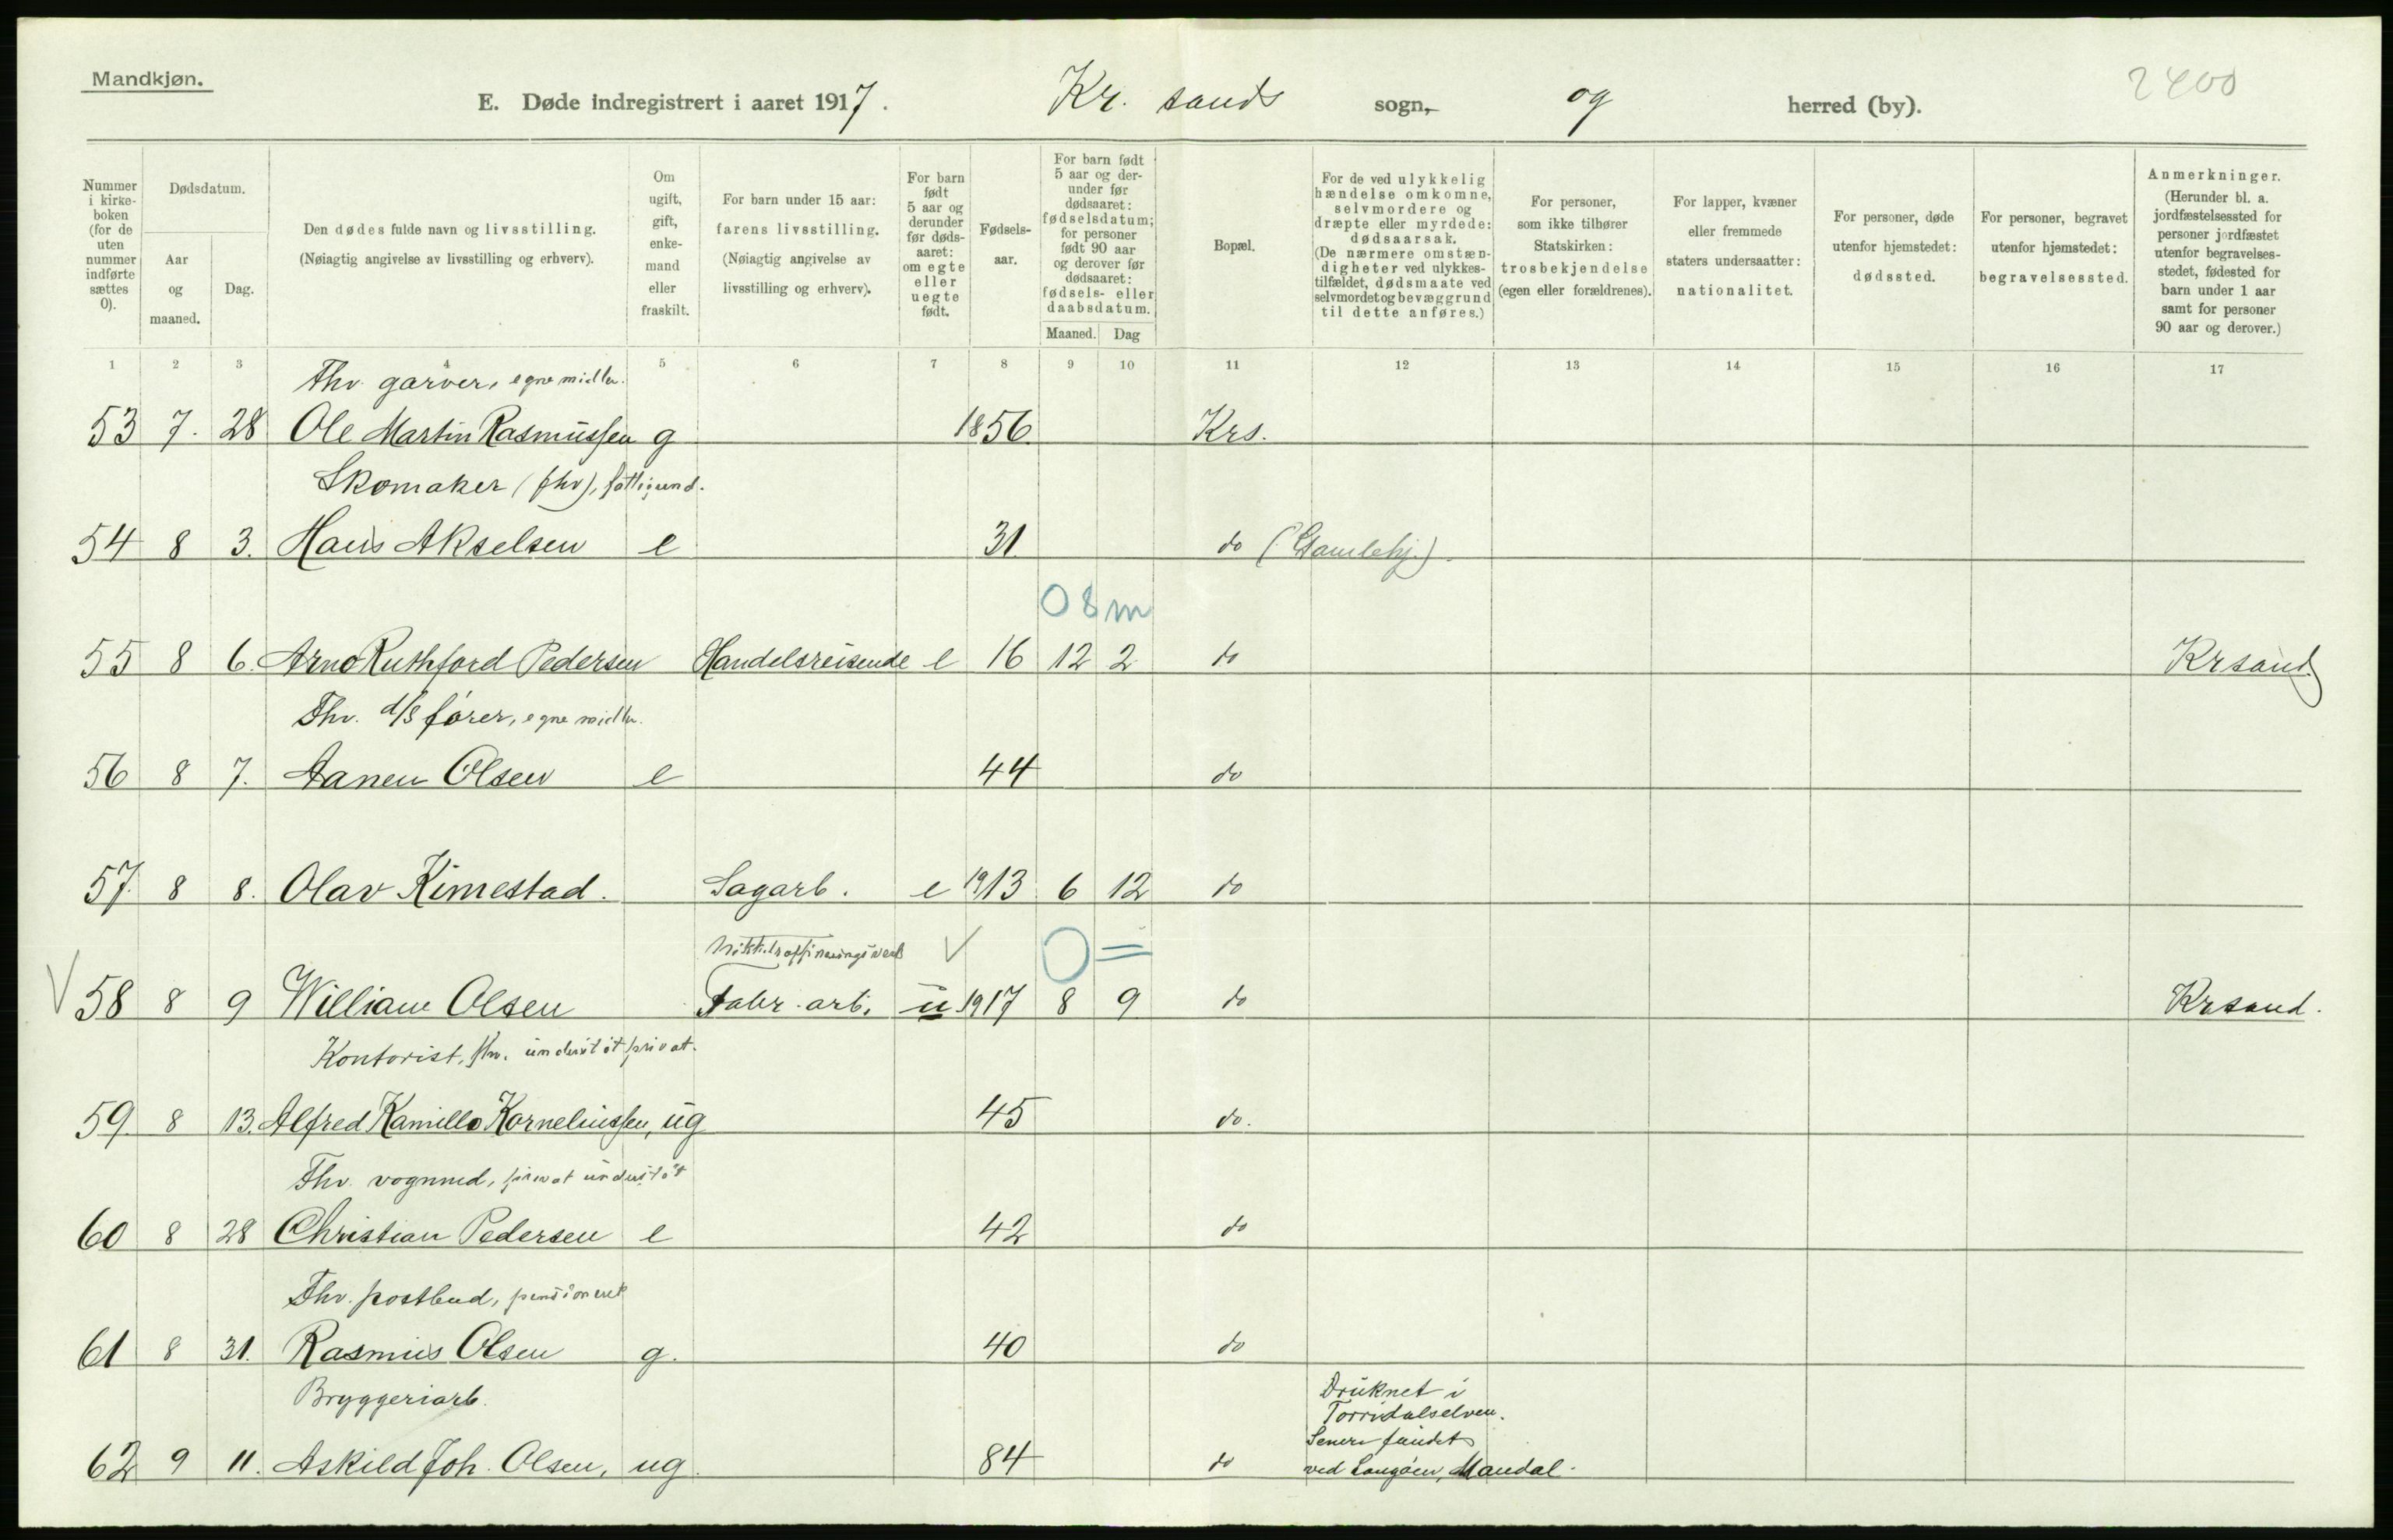 Mandkjøn.
2400
E. Døde indregistrert i aaret 1917. Kr. sands sogn, og herred (by).
Nummer i kirke-boken (for de uten nummer indførte sættes 0).
Dødsdatum.
Aar og maaned.
Dag.
Den dødes fulde navn og livsstilling. (Nøiagtig angivelse av livsstilling og erhverv).
Om ugift, gift, enke-mand eller fraskilt.
For barn under 15 aar: farens livsstilling. (Nøiagtig angivelse av livsstilling og erhverv).
For barn født 5 aar og derunder før døds-aaret: om egte eller uegte født.
Fødsels-aar.
For barn født 5 aar og der-under før dødsaaret: fødselsdatum; for personer født 90 aar og derover før dødsaaret: fødsels- eller daabsdatum.
Maaned. Dag
Bopæl.
For de ved ulykkelig hændelse omkomne, selvmordere og dræpte eller myrdede: dødsaarsak. (De nærmere omstæn-digheter ved ulykkes-tilfældet, dødsmaate ved selvmordet og bevæggrund til dette anføres.)
For personer, som ikke tilhører Statskirken: trosbekjendelse (egen eller forældrenes).
For lapper, kvæner eller fremmede staters undersaatter: nationalitet.
For personer, døde utenfor hjemstedet: dødssted.
For personer, begravet utenfor hjemstedet: begravelsessted.
Anmerkninger. (Herunder bl. a. jordfæstelsessted for personer jordfæstet utenfor begravelses-stedet, fødested for barn under 1 aar samt for personer 90 aar og derover.)
1 2 3 4 5 6 7 8 9 10 11 12 13 14 15 16 17
Fhv. garver, egne midler.
53 7. 28 Ole Martin Rasmussen g 1856 Krs.
Skomaker (fhv), fattigund.
54 8 3. Hans Akselsen e 31. do (Gamlehj.)
0 8 m
55 8 6. Arno Ruthford Pedersen Handelsreisende e 16 12 2 do Krsand.
Fhv. d/s fører, egne midler.
56 8 7. Aanen Olsen e 44 do
57. 8 8. Olav Kimestad. Sagarb. e 1913 6 12 do
Nikkelraffineringsverk V 0 =
V 58 8 9 William Olsen Fabr. arb. u 1917 8 9 do Krsand.
Kontorist, fhv. understøt privat.
59. 8 13. Alfred Kamillo Korneliussen, ug 45 do.
Fhv. vognmd, privat understøt
60 8 28 Christian Pedersen e 42 do
Fhv. postbud, pensioneret
61 8 31. Rasmus Olsen g. 40 do
Bryggeriarb.
Druknet i
Torridalselven.
Senere fundet
62 9 11. Askild Joh. Olsen, ug. 84 do ved Langøen, Mandal.